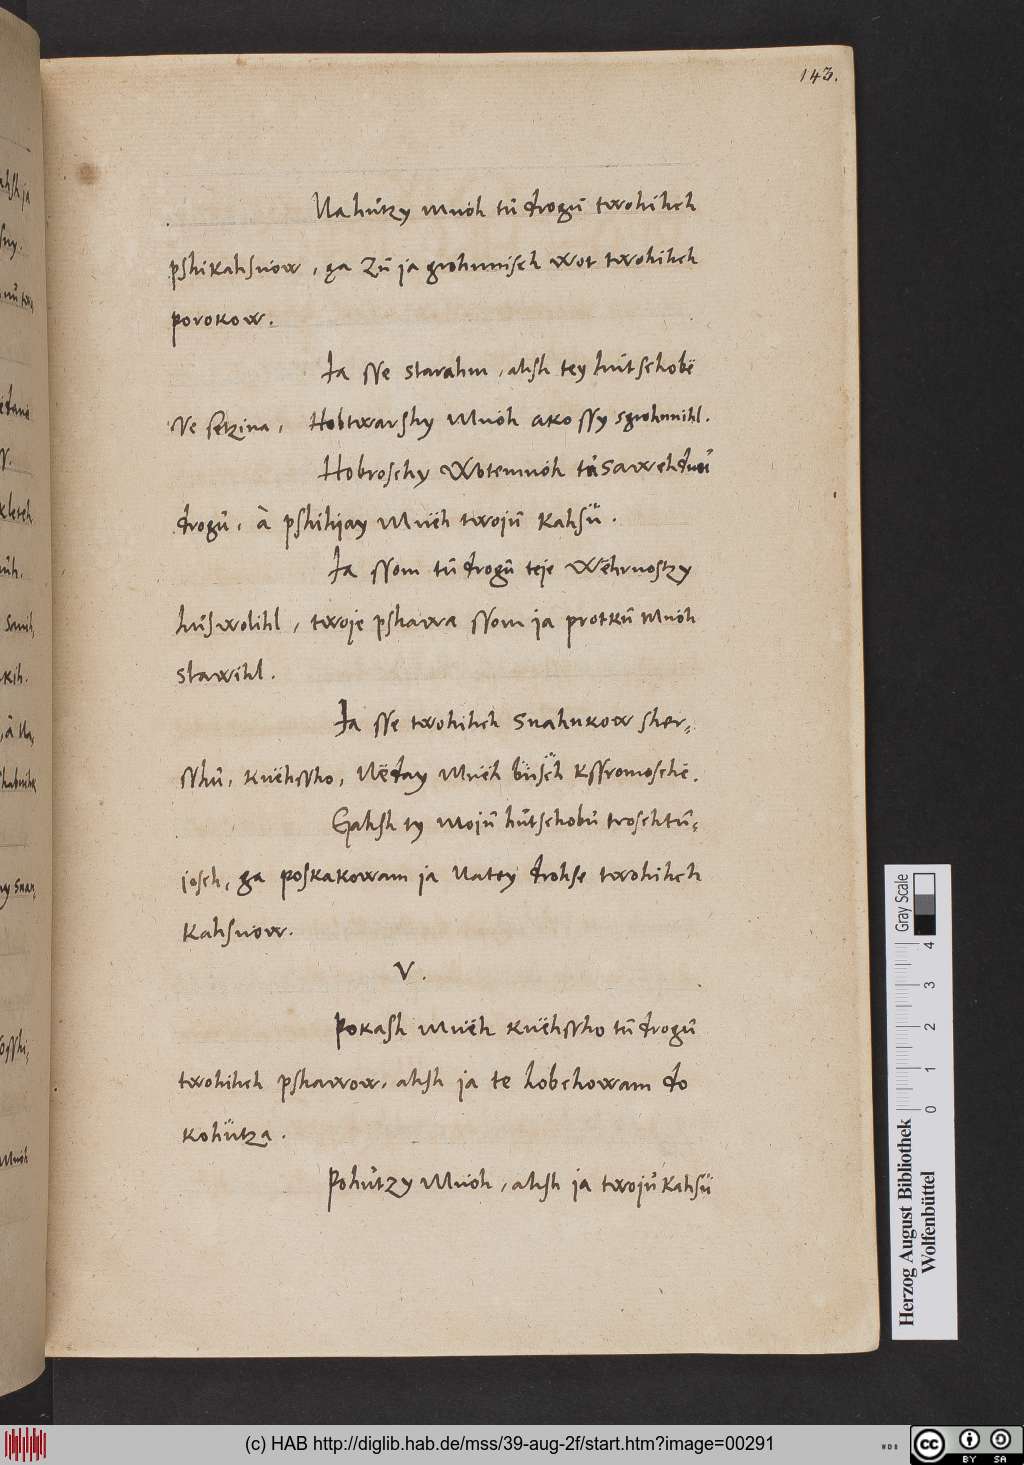 143.
Nahützy Mnöh tü drogü twohihch
pshikahsnow, ga Zü ja grohnnisch wot twohihch
porokow.
Ja sse starahm, ahsh tey hütschobë
sse setzina, Hobtwarshy Mnöh ako ssy sgrohnnihl.
Hobroschy Wotemnöh tü sawehdnü
drogü, à pshihjay Mnëh twojü kahsü.
Ja ssom tü drogü teje Wëhrnostzy
hüswolihl, twoje pshawa ssom ja protkü Mnöh
stawihl.
Ja sse twohihch Snahnkow sher,
sshü, knëhssho, Nëday Mnëh büsch kssromoschë.
Gahsh ty Mojü hütschobü troschtü,
josch, ga poskakowam ja Natey drohse twohihch
Kahsnow.
V.
Pokash Mnëh knëhssho tü drogü
twohihch pshawow, ahsh ja te hobchowam do
kohütza.
Pohützy Mnöh, ahsh ja twojü kahsü
Gray Scale
0 1 2 3 4
Herzog August Bibliothek
Wolfenbüttel
(c) HAB http://diglib.hab.de/mss/39-aug-2f/start.htm?image=00291
WDB
cc BY SA